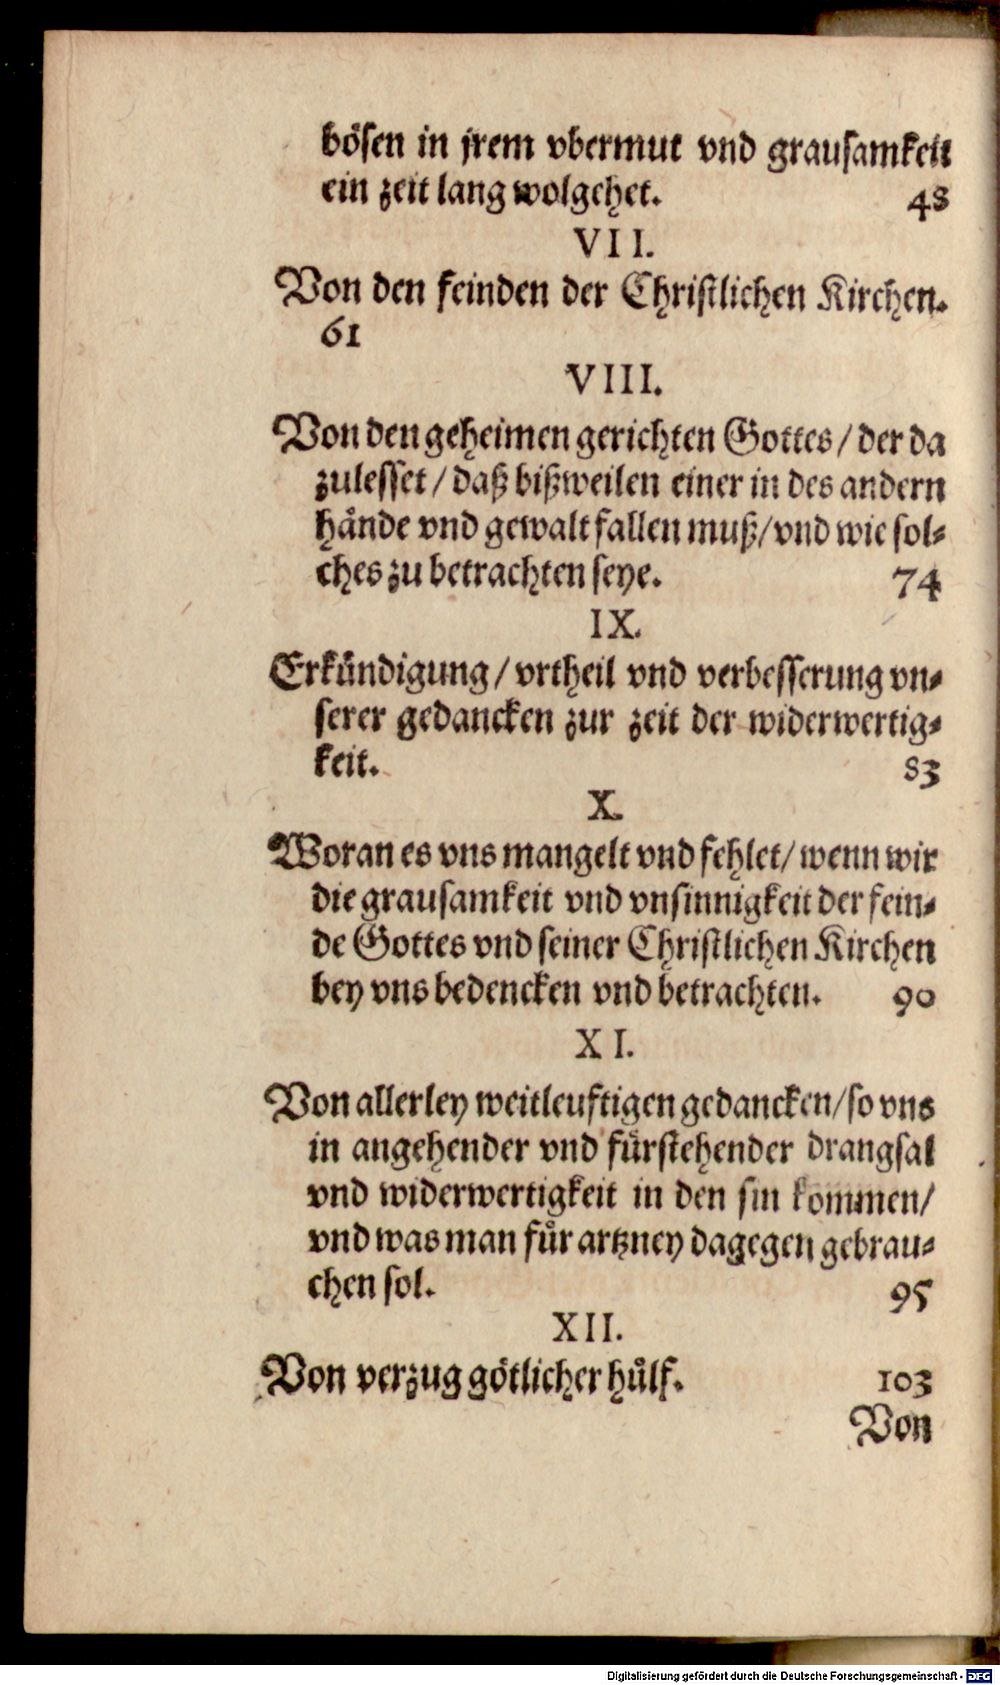 bösen in jrem vbermut vnd grausamkeit
ein zeit lang wolgehet. 48
VII.
Von den feinden der Christlichen Kirchen.
61
VIII.
Von den geheimen gerichten Gottes / der da
zulesset / daß bißweilen einer in des andern
hände vnd gewalt fallen muß / vnd wie sol-
ches zu betrachten seye. 74
IX.
Erkündigung / vrtheil vnd verbesserung vn-
serer gedancken zur zeit der widerwertig-
keit. 83
X.
Woran es vns mangelt vnd fehlet / wenn wir
die grausamkeit vnd vnsinnigkeit der fein-
de Gottes vnd seiner Christlichen Kirchen
bey vns bedencken vnd betrachten. 90
XI.
Von allerley weitleuftigen gedancken / so vns
in angehender vnd fürstehender drangsal
vnd widerwertigkeit in den sin kommen /
vnd was man für artzney dagegen gebrau-
chen sol. 95
XII.
Von verzug götlicher hülf. 103
Von
Digitalisierung gefördert durch die Deutsche Forschungsgemeinschaft - DFG